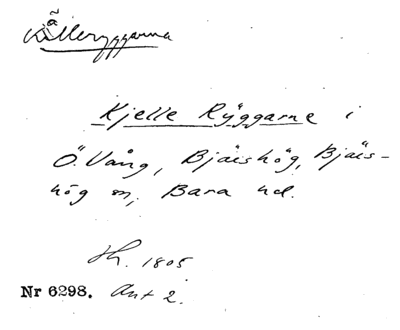 Källeryggarna
Kjelle Ryggarne i
Ö. Vång, Bjäishög, Bjäis-
hög sn, Bara hd.
Sh. 1805
Nr 6298. Akt 2.